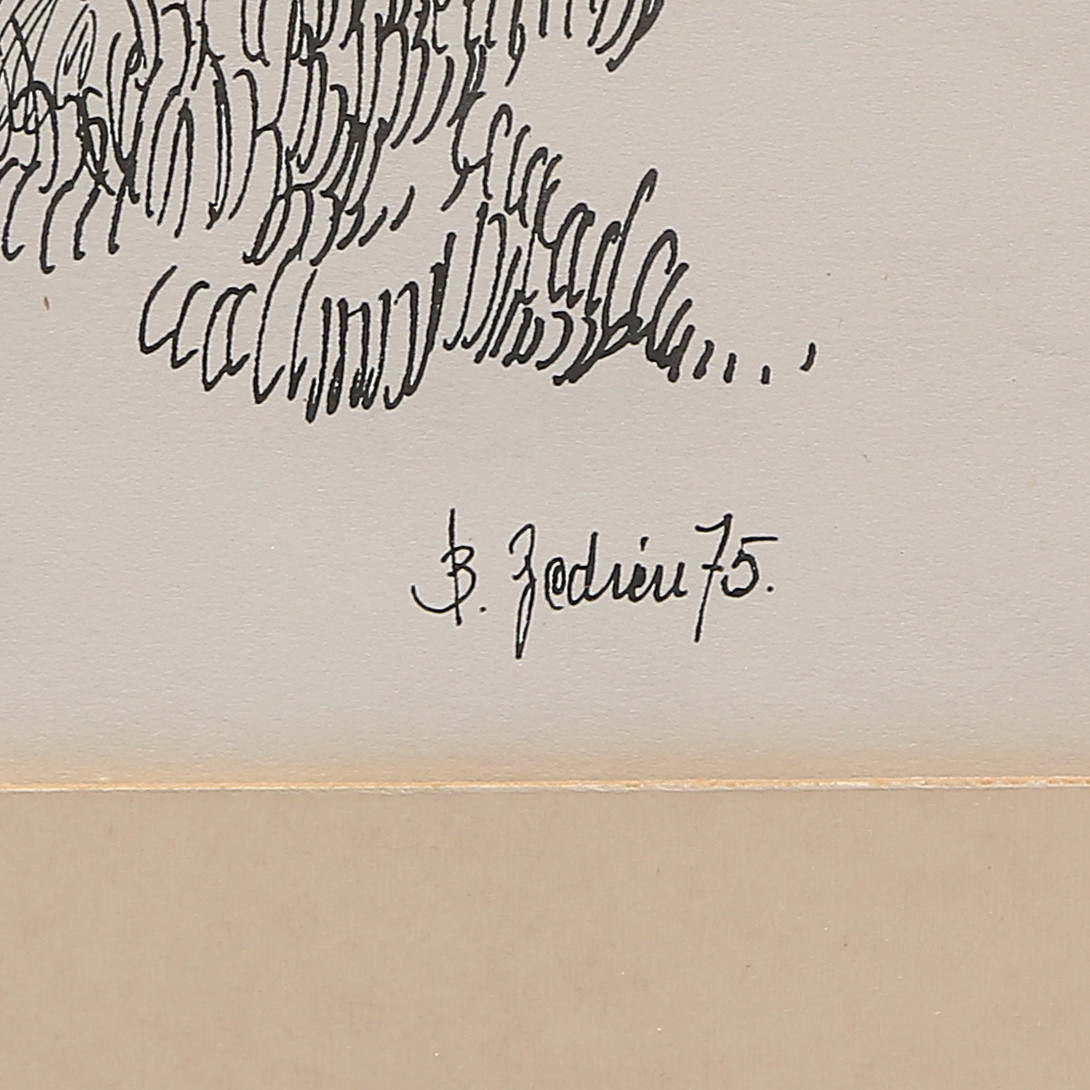 B. Zedrieu 75.